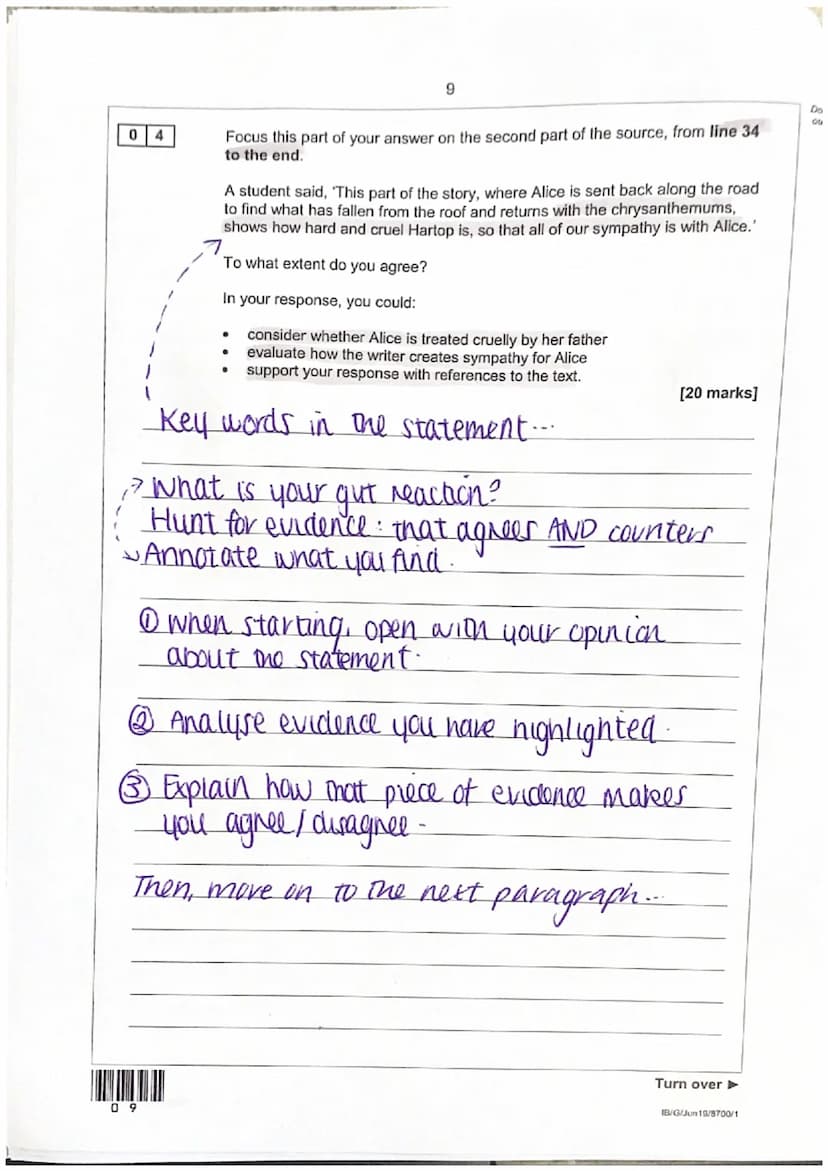 9
Do
0 4
Focus this part of your answer on the second part of the source, from line 34
to the end.
A student said, 'This part of the story, where Alice is sent back along the road
to find what has fallen from the roof and returns with the chrysanthemums,
shows how hard and cruel Hartop is, so that all of our sympathy is with Alice.'
To what extent do you agree?
In your response, you could:
• consider whether Alice is treated cruelly by her father
• evaluate how the writer creates sympathy for Alice
• support your response with references to the text.
[20 marks]
Key words in the statement...
What is your gut reaction?
Hunt for evidence: that agrees AND counters
Annotate what you find.
① When starting, open with your opinion
about the statement.
② Analyse evidence you have highlighted.
③ Explain how that piece of evidence makes
you agree/disagree -
Then, move on to the next paragraph...
Turn over ►
0 9
IB/G/Jun19/8700/1